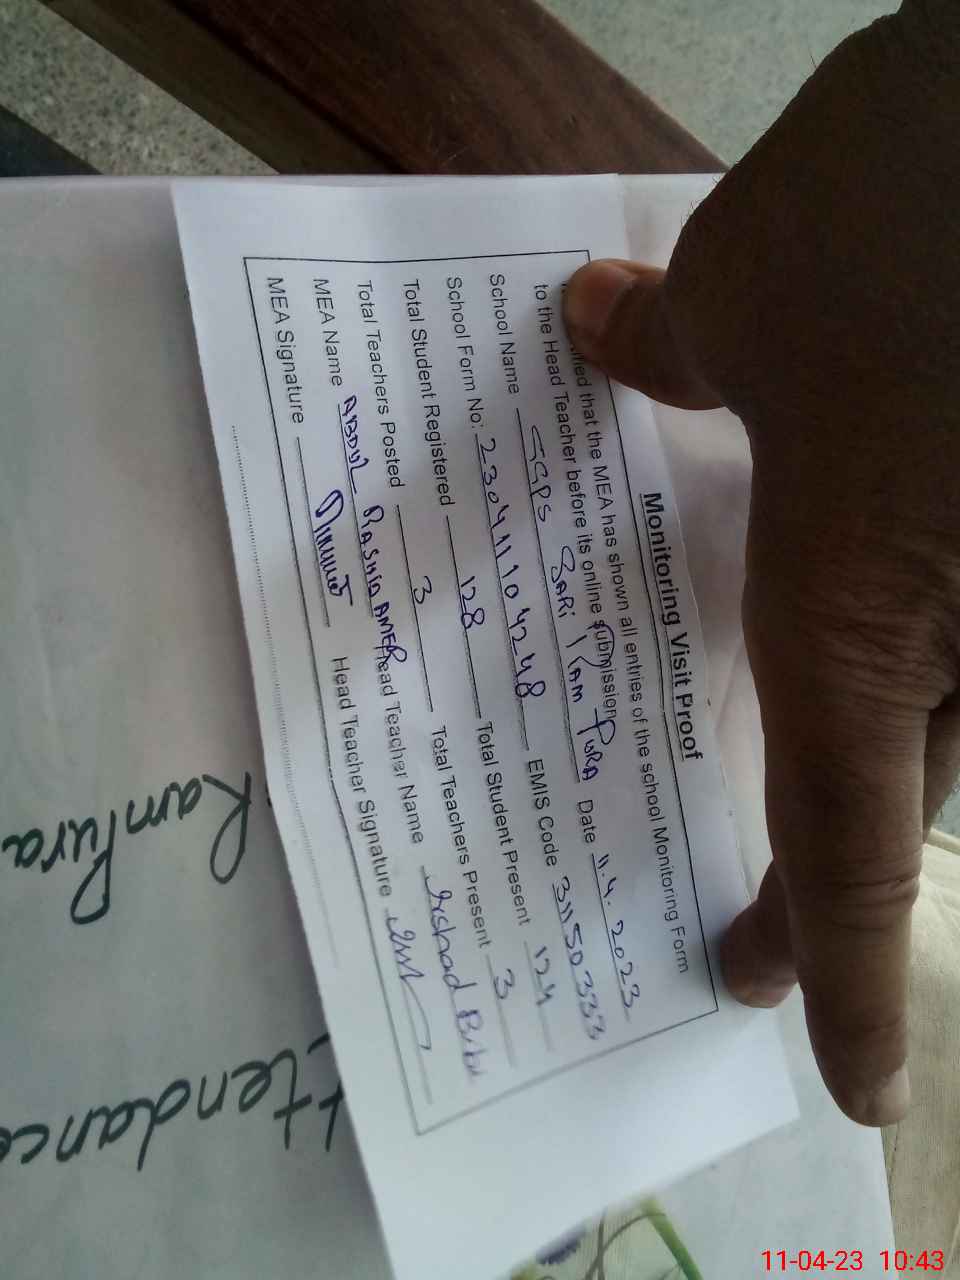 Monitoring Visit Proof
that the MEA has shown all entries of the school Monitoring Form
to the Head Teacher before its online submission
School Name GGPS BARi RAM PURA Date 11.4.2023
School Form No: 230411104248 EMIS Code 31150333
Total Student Registered 128 Total Student Present 124
Total Teachers Posted 3 Total Teachers Present 3
MEA Name ABDUL RASHID AMER Head Teacher Name Irshad Bibi
MEA Signature Head Teacher Signature
Attendance
RamPura
11-04-23 10:43